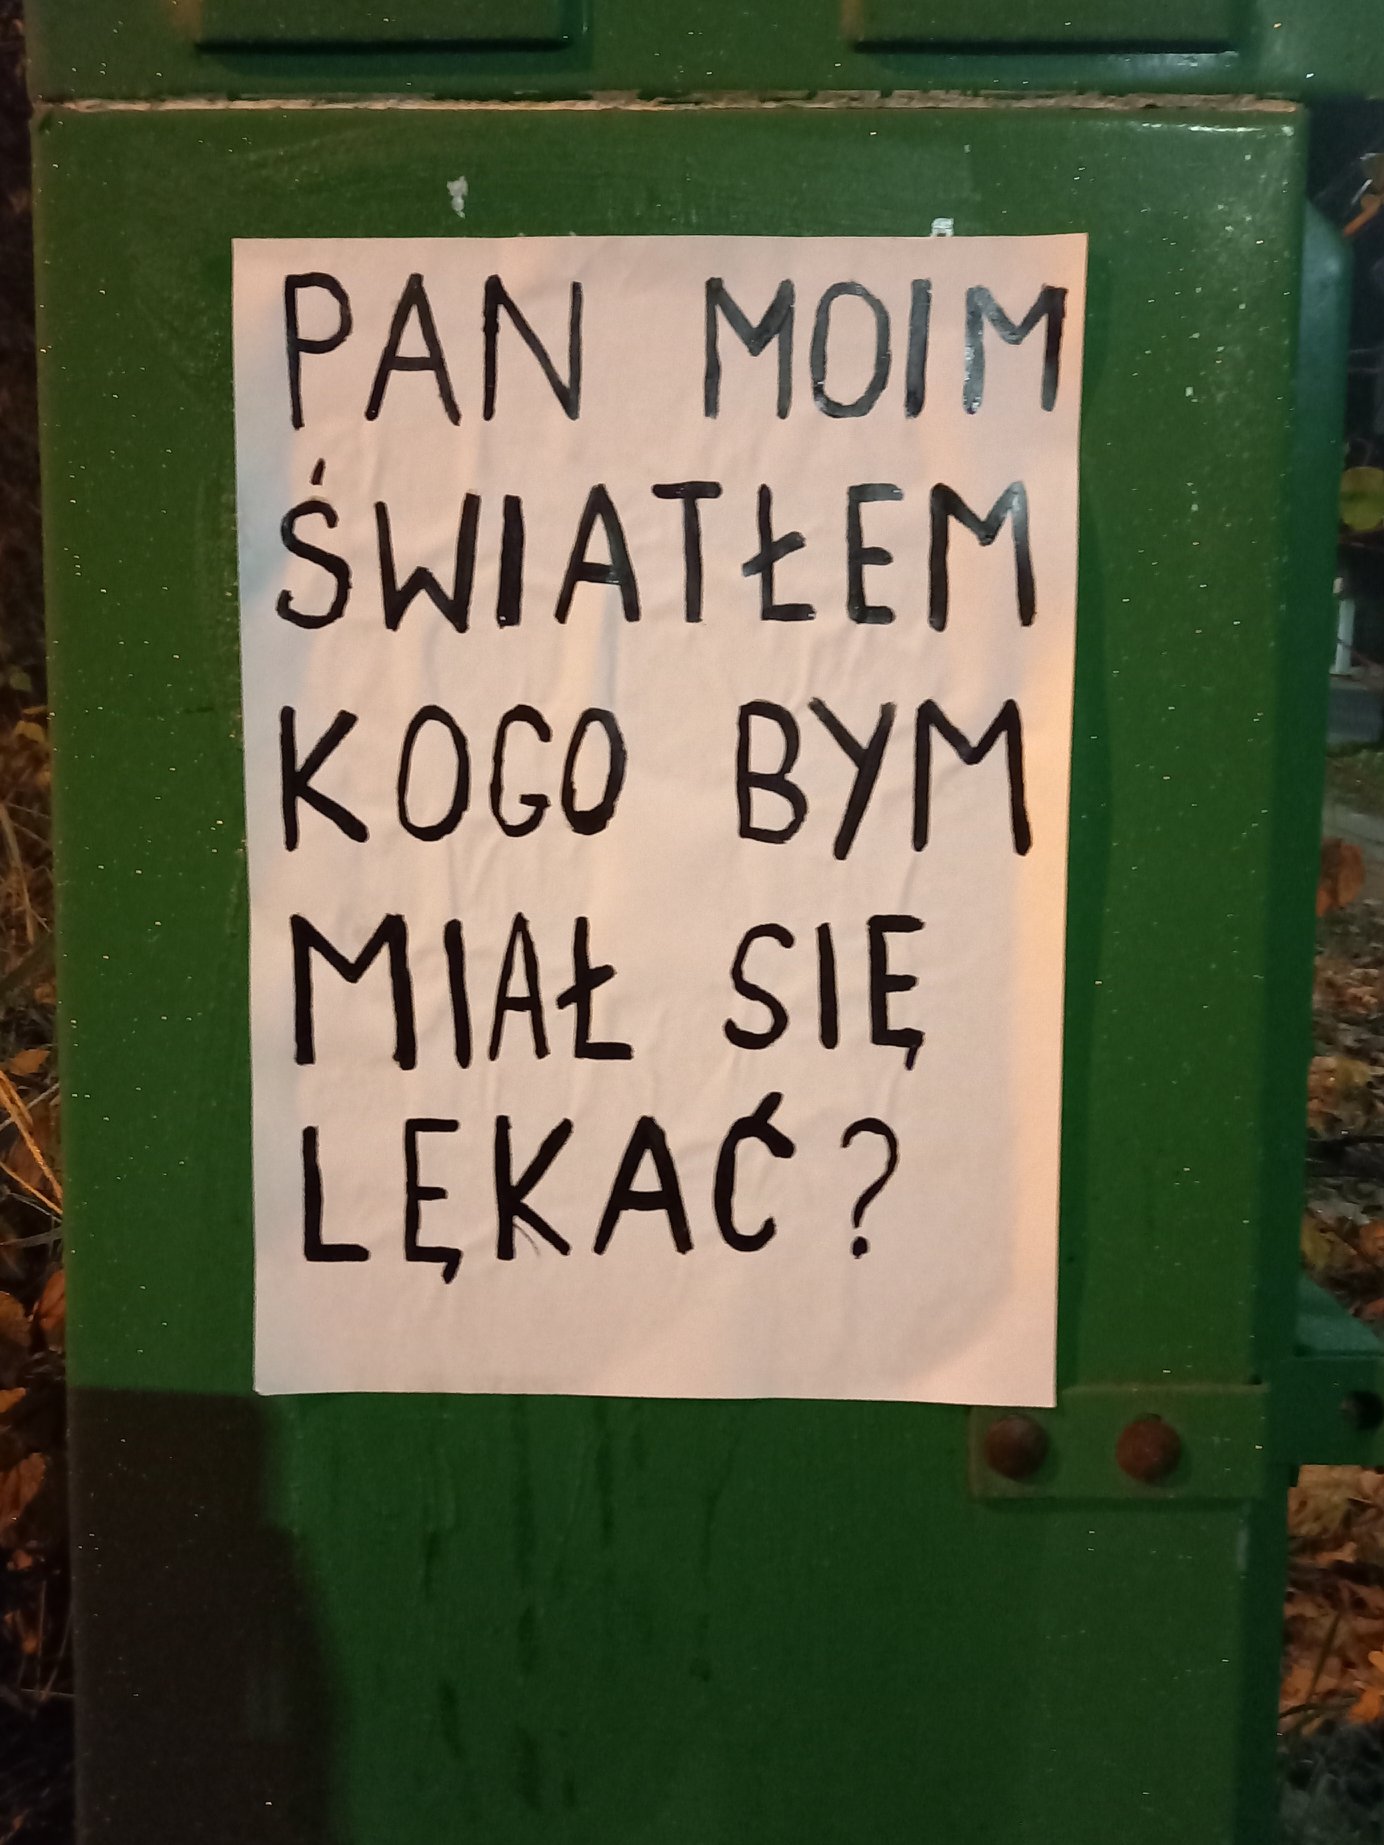 PAN MOIM
ŚWIATŁEM
KOGO BYM
MIAŁ SIĘ
LĘKAĆ?